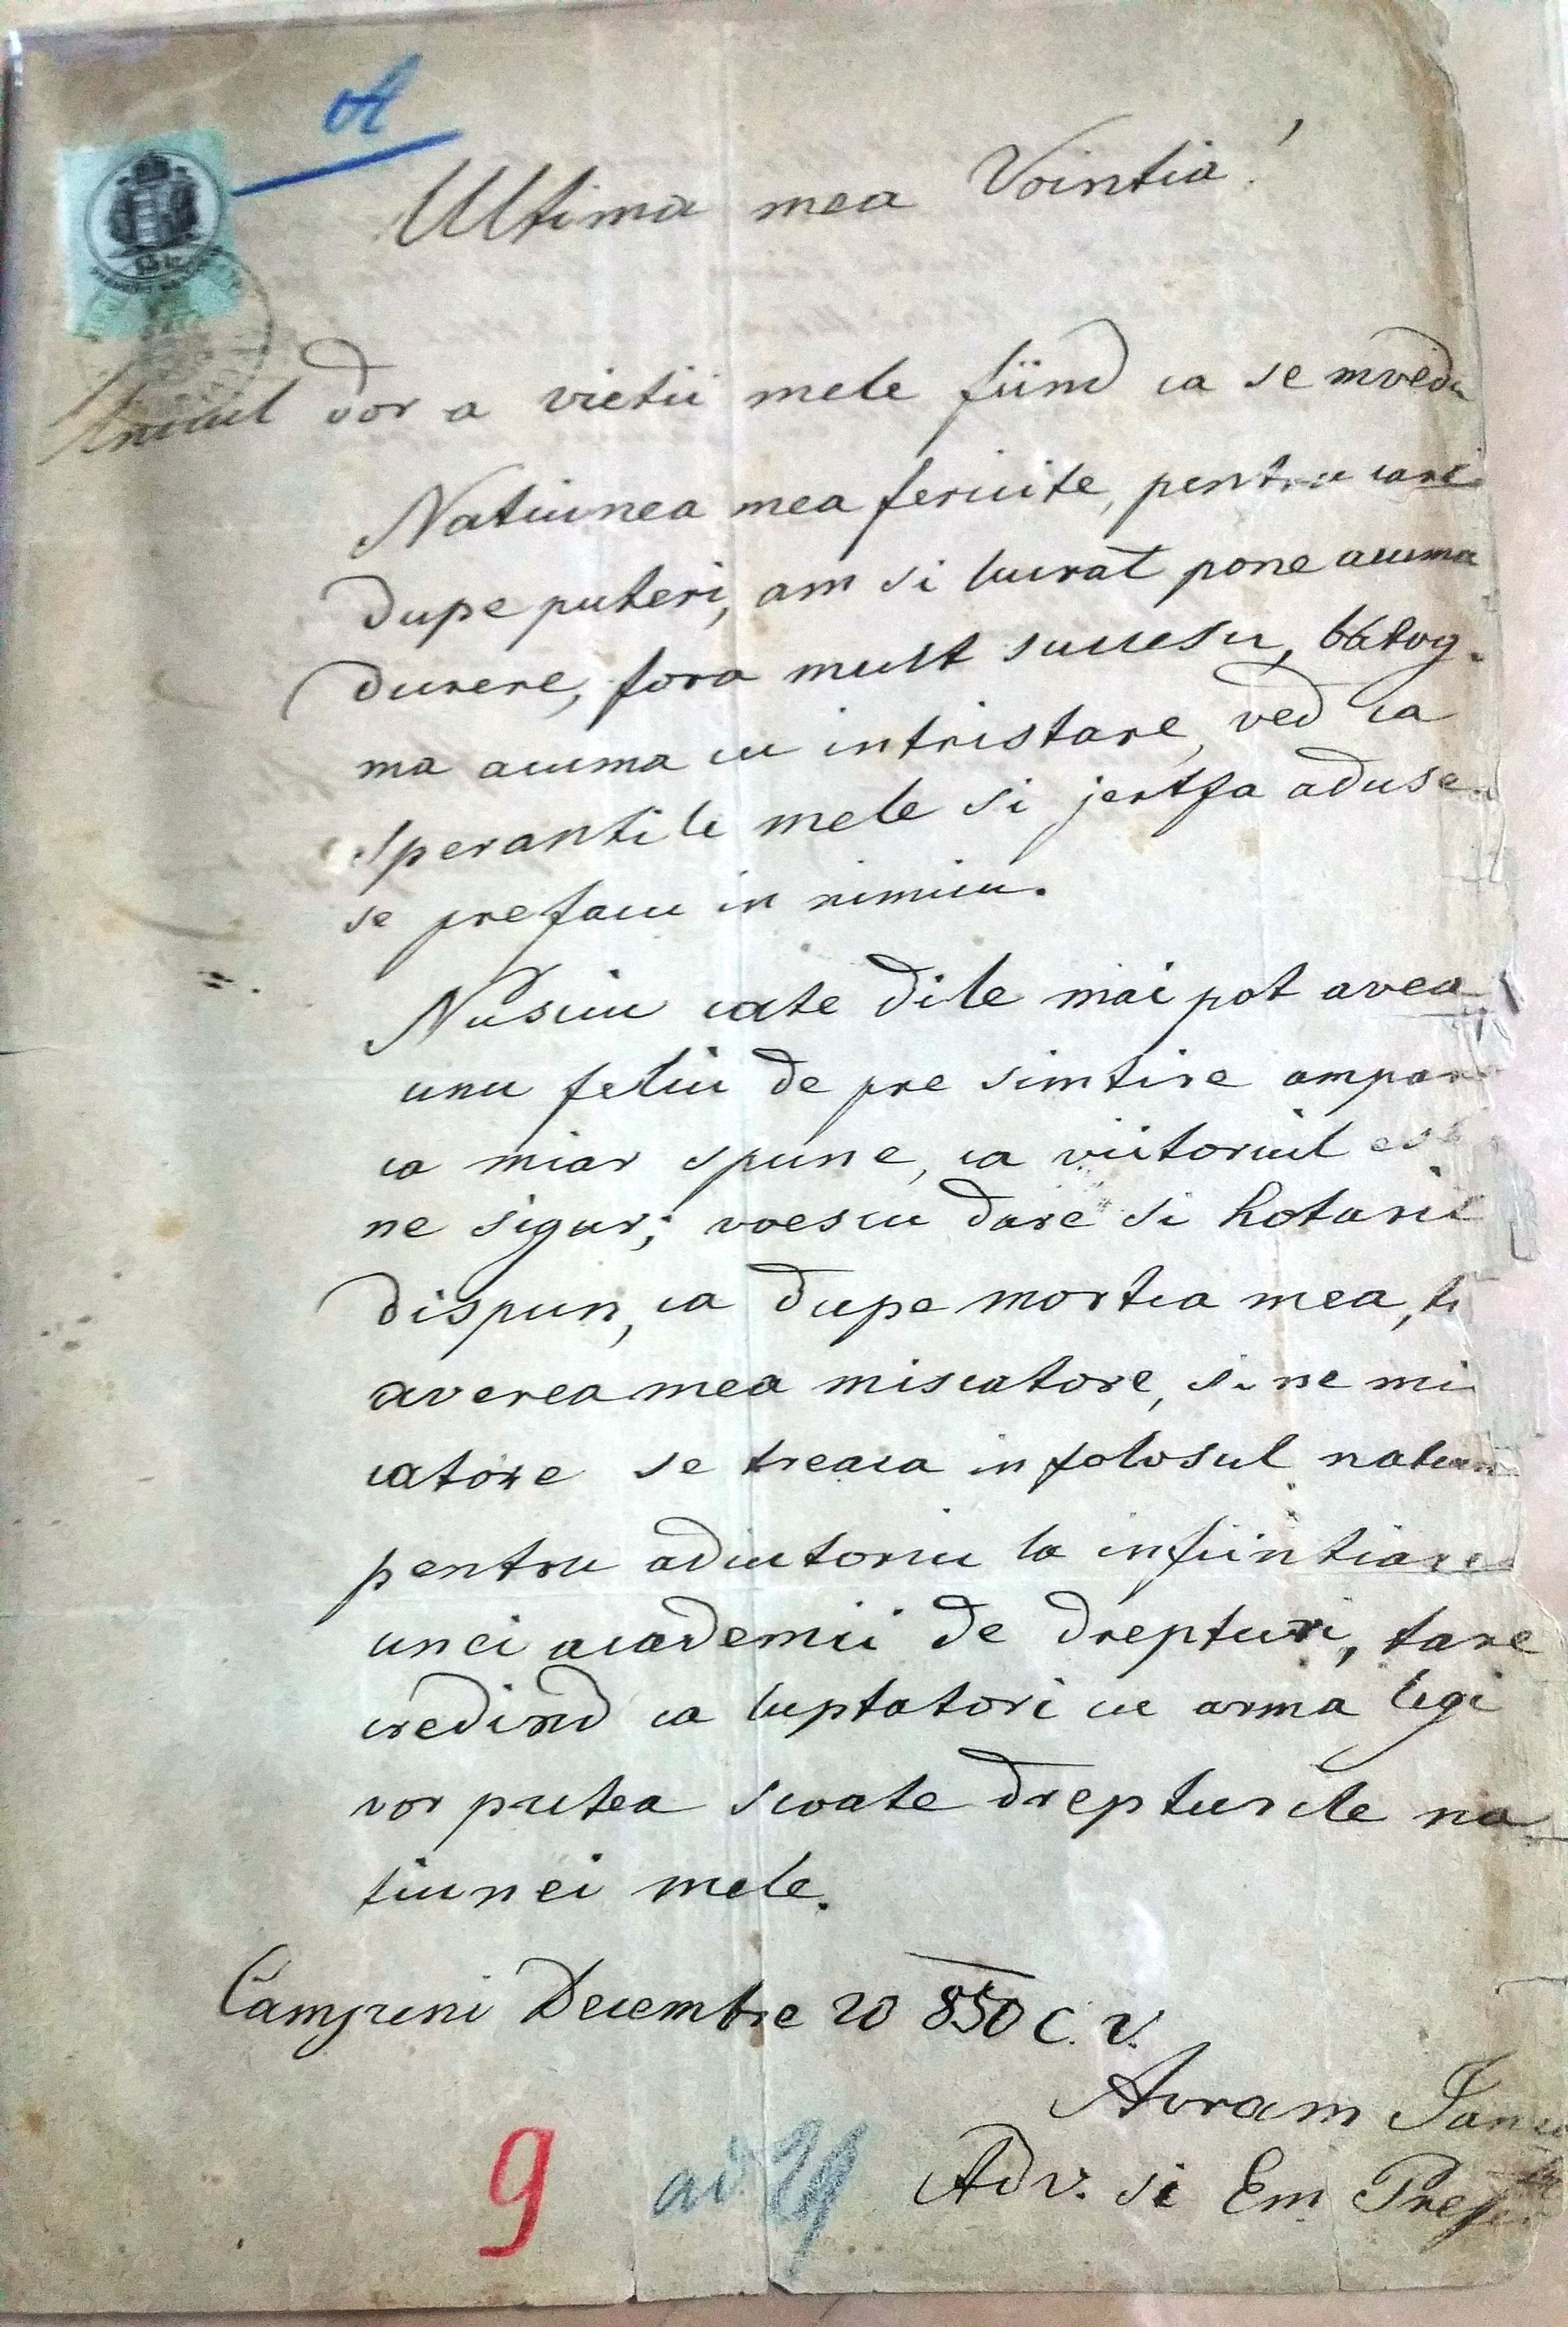 A
Ultima mea Vointia!
Unicul dor a vietii mele fiind ca se mved
Natiunea mea fericite, pentru care
dupe puteri, am si lucrat pone acuma
durere, fora mult succesu,
ma acuma cu intristare, ved ca
sperantile mele si jertfa aduse
se prefacu in nimicu.
Nusciu cate dile mai pot avea
unu feliu de pre simtire ampar
ca miar spune, ca viitoriul es
ne sigur; voescu dare si hotarit
dispun, ca dupe mortea mea, t
averea mea miscatore, si ne mi
catore se treaca in folosul natiun
pentru adiutoriu la infiintiare
unei academii de drepturi, tare
credind ca luptatori cu arma legi
vor putea scoate drepturile na
tiunei mele.
Campeni Decembre 20 850 C. V.
Avram Iancu
Adv. si Em Prefe
9 ad 29